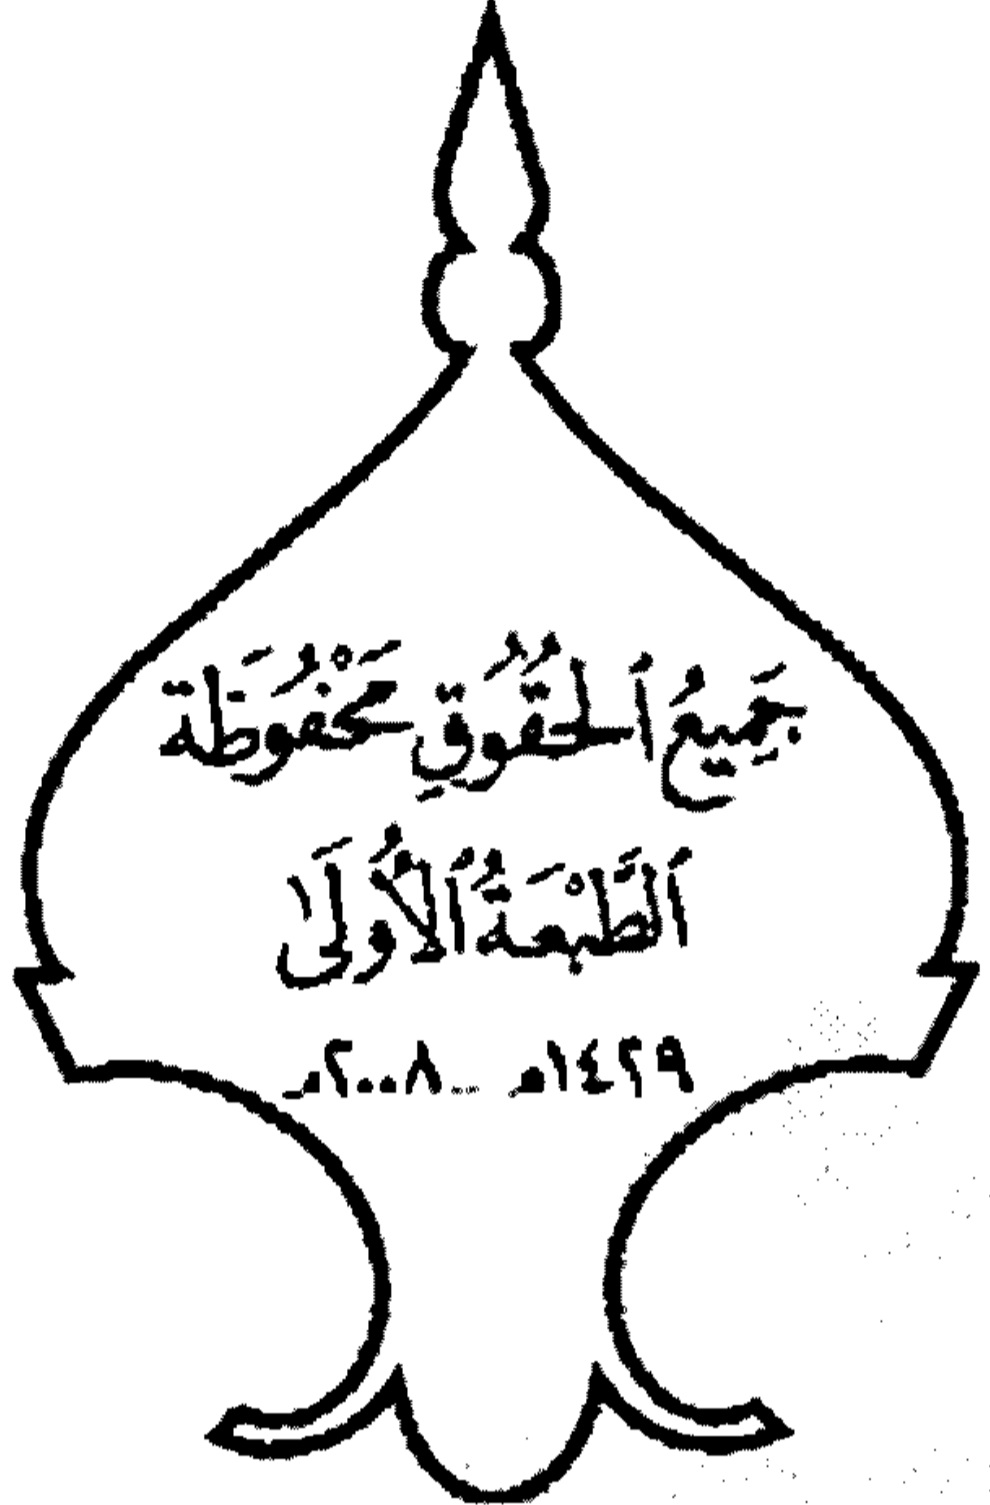 جَمِيعُ ٱلْحُقُوقِ مَحْفُوظَة
ٱلطَّبْعَةُ ٱلْأُولَىٰ
١٤٢٩هـ - ٢٠٠٨مـ